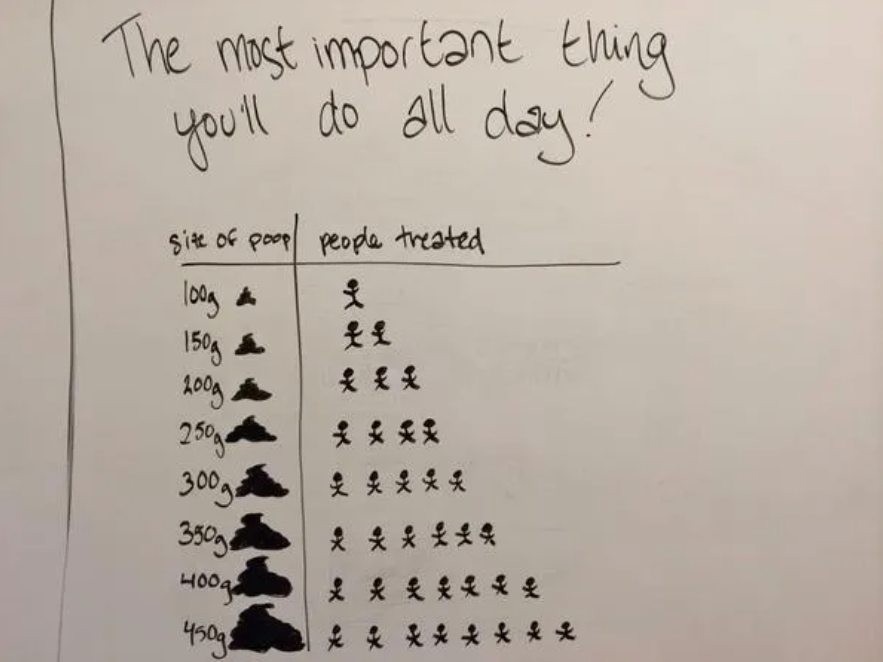 The most important thing
you'll do all day!
size of poop people treated
100g
150g
200g
250g
300g
350g
400g
450g